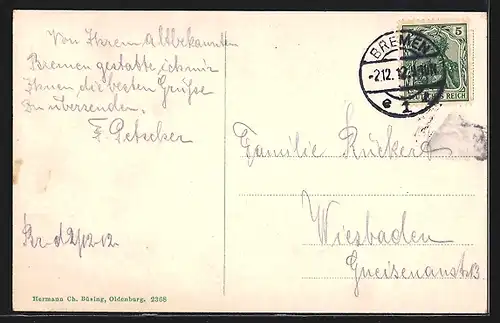 Von Ihrem altbekannten
Bremen gestatte ich mir
Ihnen die besten Grüsse
zu übersenden.
F. Petscher
Br. d 2/12-12.
BREMEN
-2.12.12
e 1 e
5
REICH
Familie Rückert
Wiesbaden
Gneisenaustr.
Hermann Ch. Büsing, Oldenburg. 2368